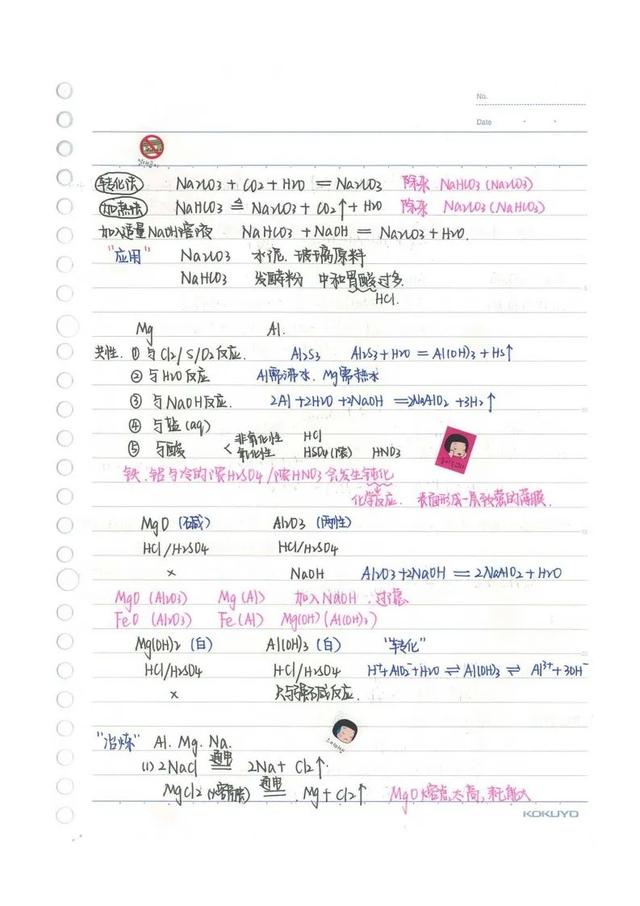 No.
Date
转化法 Na2CO3 + CO2 + H2O = Na2CO3 除杂 NaHCO3 (Na2CO3)
加热法 NaHCO3 ≜ Na2CO3 + CO2↑ + H2O 除杂 Na2CO3 (NaHCO3)
加入适量NaOH溶液 NaHCO3 + NaOH = Na2CO3 + H2O.
"应用" Na2CO3 水泥. 玻璃原料
NaHCO3 发酵粉 中和胃酸过多.
HCl.
Mg Al.
共性. ① 与Cl2/S/O2反应. Al2S3 Al2S3 + H2O = Al(OH)3 + HS↑
② 与H2O反应 Al需沸水. Mg需热水
③ 与NaOH反应. 2Al + 2H2O + 2NaOH = 2NaAlO2 + 3H2↑
④ 与盐(aq)
⑤ 与酸 < 非氧化性 HCl
氧化性 HSO4(浓) HNO3
铁.铝与冷的浓H2SO4/浓HNO3会发生钝化
化学反应. 表面形成一层致密的薄膜.
MgO (碱) Al2O3 (两性)
HCl/H2SO4 HCl/H2SO4
× NaOH Al2O3 + 2NaOH = 2NaAlO2 + H2O
MgO (Al2O3) Mg (Al) 加入NaOH.过滤
FeO (Al2O3) Fe(Al) Mg(OH) (Al(OH)3)
Mg(OH)2 (白) Al(OH)3 (白) "转化"
HCl/H2SO4 HCl/H2SO4 H⁺+AlO2⁻+H2O ⇌ Al(OH)3 ⇌ Al³⁺+3OH⁻
× 只与强碱反应.
"冶炼" Al. Mg. Na.
(1) 2NaCl 通电= 2Na + Cl2↑
MgCl2 (熔融) 通电= Mg + Cl2↑ MgO熔点太高,耗能大
KOKUYO